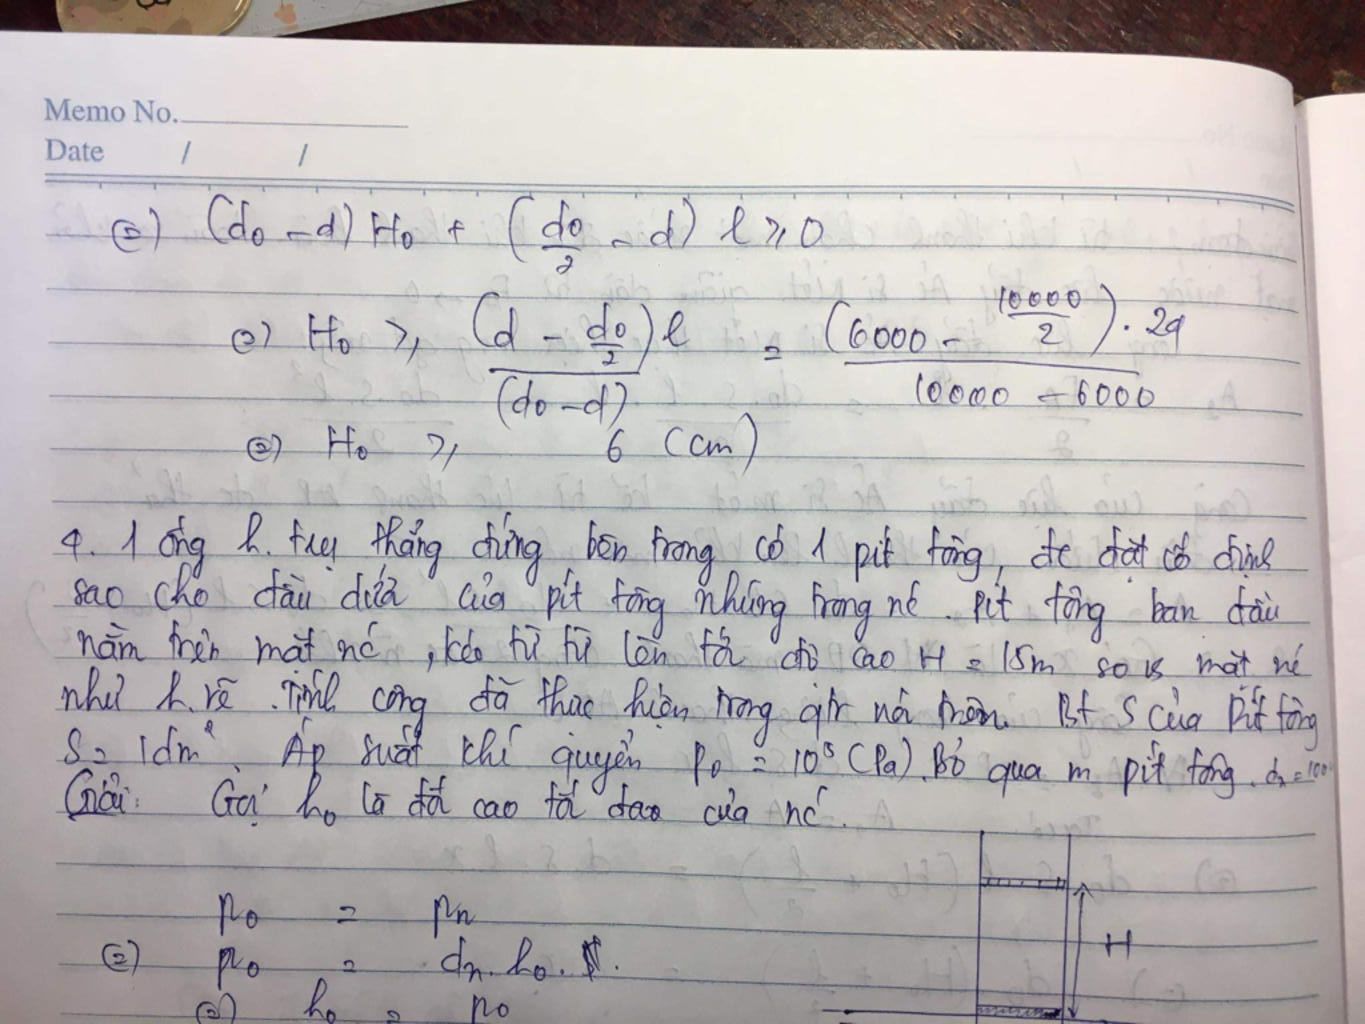 Memo No.
Date / /
(=) (d₀ - d) H₀ + (d₀/2 - d) l ≥ 0
(=) H₀ ≥ (d - d₀/2) l / (d₀ - d) = (6000 - 10000/2) . 24 / 10000 - 6000
(=) H₀ ≥ 6 (cm)
4. 1 ống h. trụ thẳng đứng bên trong có 1 pit tông, đc đặt cố định
sao cho đầu dưới của pít tông nhúng trong nc. Pít tông ban đầu
nằm trên mặt nc, kéo từ từ lên tới độ cao H = 15m so vs mặt nc
như h. vẽ. Tính công đã thực hiện trong qtr nói trên. Bt S của Pít tông
S = 1dm². Áp suất khí quyển p₀ = 10⁵ (Pa). Bỏ qua m pit tông. dₙ = 100
Giải: Gọi h₀ là độ cao tối đao của nc.
p₀ = pₙ
(=) p₀ = dₙ . h₀ .
H
(=) h₀ = p₀